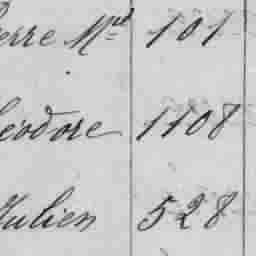 ierre Md 101
héodore 1108
Julien 528